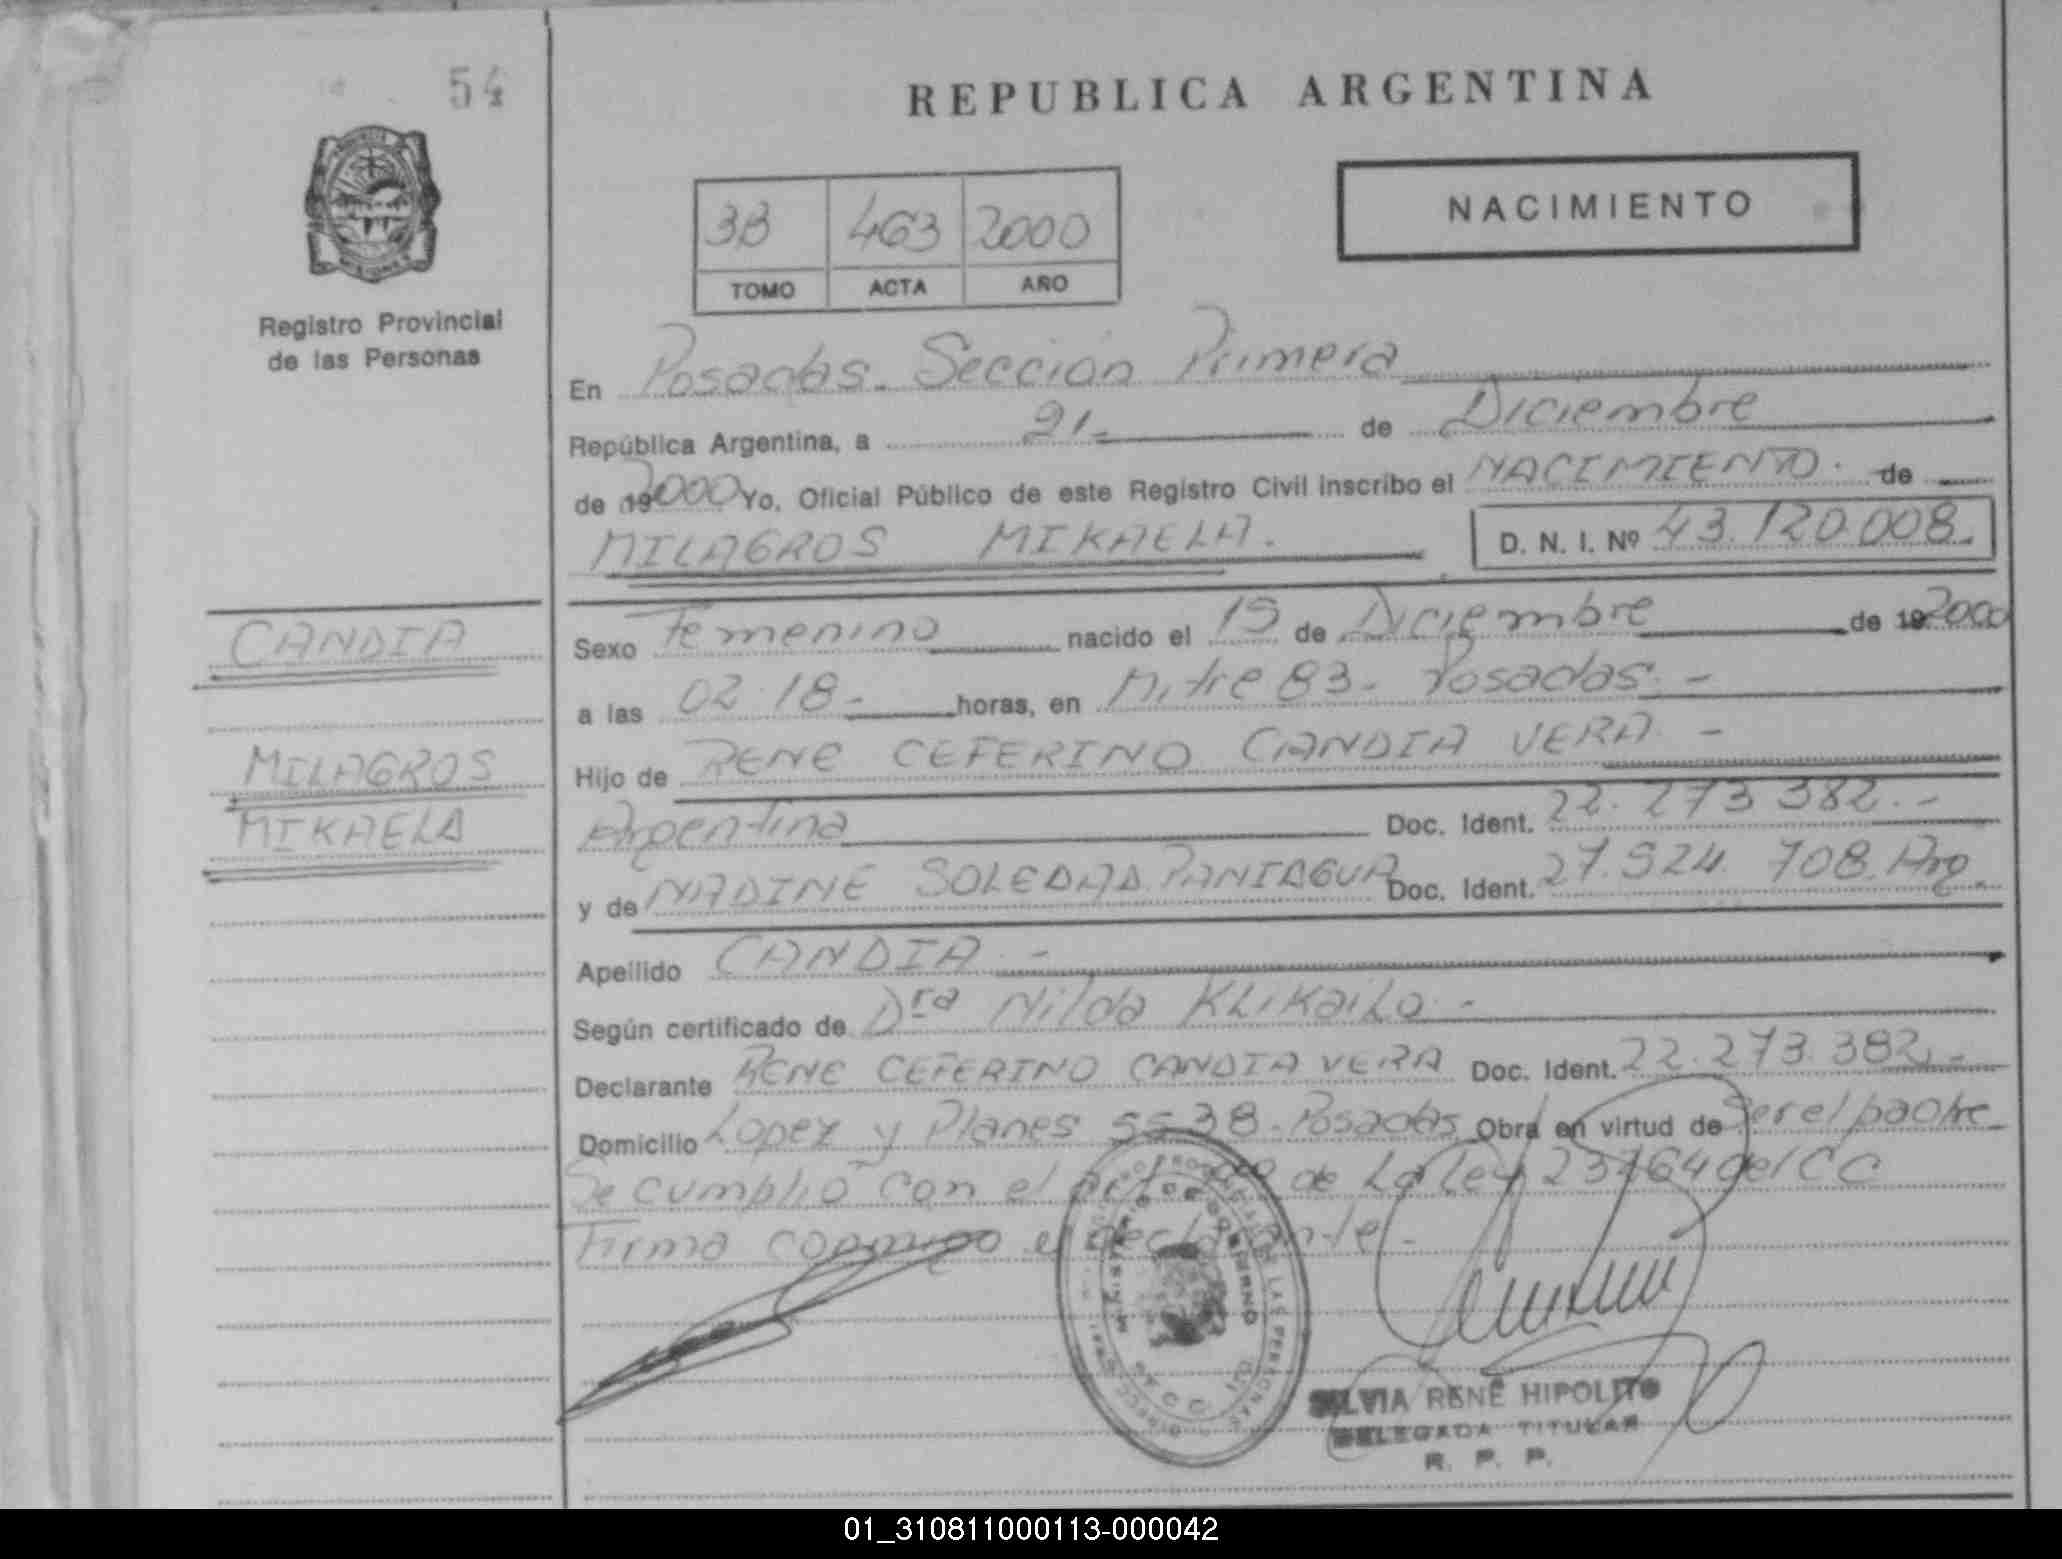 54
REPUBLICA ARGENTINA
NACIMIENTO
3B 463 2000
TOMO ACTA AÑO
Registro Provincial
de las Personas
En Posadas. Sección Primera
República Argentina, a 21.- de Diciembre
de 19 2000 Yo, Oficial Público de este Registro Civil inscribo el NACIMIENTO. de
MILAGROS MIKAELA. D. N. I. Nº 43.120.008.
CANDIA
MILAGROS
MIKAELA
Sexo Femenino nacido el 15 de Diciembre de 19 2000
a las 02.18.- horas, en Mitre 83.- Posadas.-
Hijo de RENE CEFERINO CANDIA VERA.-
Argentina Doc. Ident. 22.273.382.-
y de NADINE SOLEDAD PANIAGUA Doc. Ident. 27.524.708. Arg.
Apellido CANDIA.-
Según certificado de Dra Nilda KLiKaiLo.-
Declarante RENE CEFERINO CANDIA VERA Doc. Ident. 22.273.382.-
Domicilio Lopez y Planes 5538. Posadas Obra en virtud de Ser el padre
Se cumplió con el de La Ley 23264 del CC
Firma conmigo el declarante.-
SILVIA RENE HIPOLITO
DELEGADA TITULAR
R. P. P.
01_310811000113-000042